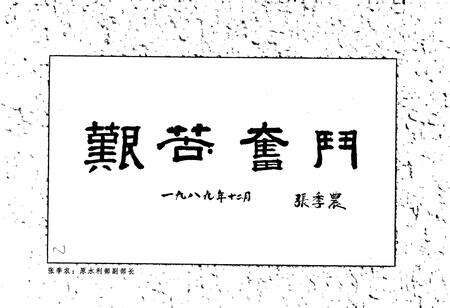 艱苦奮鬥
一九八九年十二月 張季農
张季农：原水利部副部长